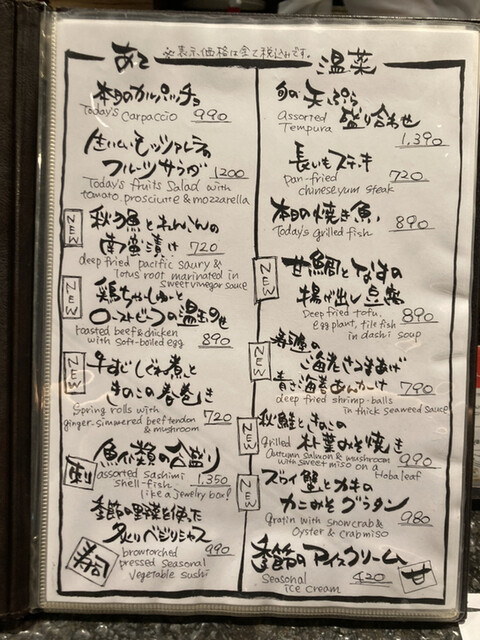 ※表示価格は全て税込みです。
あて
本日のカルパッチョ
Today's Carpaccio 990
生ハムとモッツァレラの
フルーツサラダ 1200
Today's fruits Salad with
tomato, prosciutte & mozzarella
NEW
秋刀魚とれんこんの
南蛮漬け 720
deep fried pacific saury &
lotus root marinated in
sweet vinegar sauce
NEW
鶏ちゃーしゅーと
ローストビーフの温玉のせ
roasted beef & chicken
with soft-boiled egg 890
NEW
牛すじしぐれ煮と
きのこの春巻き
Spring rolls with
ginger-simmered beef tendon
& mushroom 720
魚介類の盛り
assorted sashimi
shell-fish 1,350
like a jewelry box!
季節の野菜を使った
炙りベジリシャス
寿司
browtorched 990
pressed seasonal
vegetable sushi
温菜
旬の天ぷら
盛り合わせ
Assorted
Tempura 1,390
長いもステーキ
pan-fried 720
chinese yum steak
本日の焼き魚
Today's grilled fish 890
NEW
甘鯛となすの
揚げ出し豆腐
Deep fried tofu, 890
egg plant, tile fish
in dashi soup
NEW
海老さつまあげ
青さ海苔あんかけ 790
deep fried shrimp-balls
in thick seaweed sauce
NEW
秋鮭ときのこの
朴葉みそ焼き
grilled Autumn salmon & mushroom
with sweet miso on a Hoba leaf 990
NEW
ズワイ蟹とカキの
カニみそグラタン
gratin with snowcrab & 980
Oyster & crab miso
季節のアイスクリーム
Seasonal
ice cream 420
甘